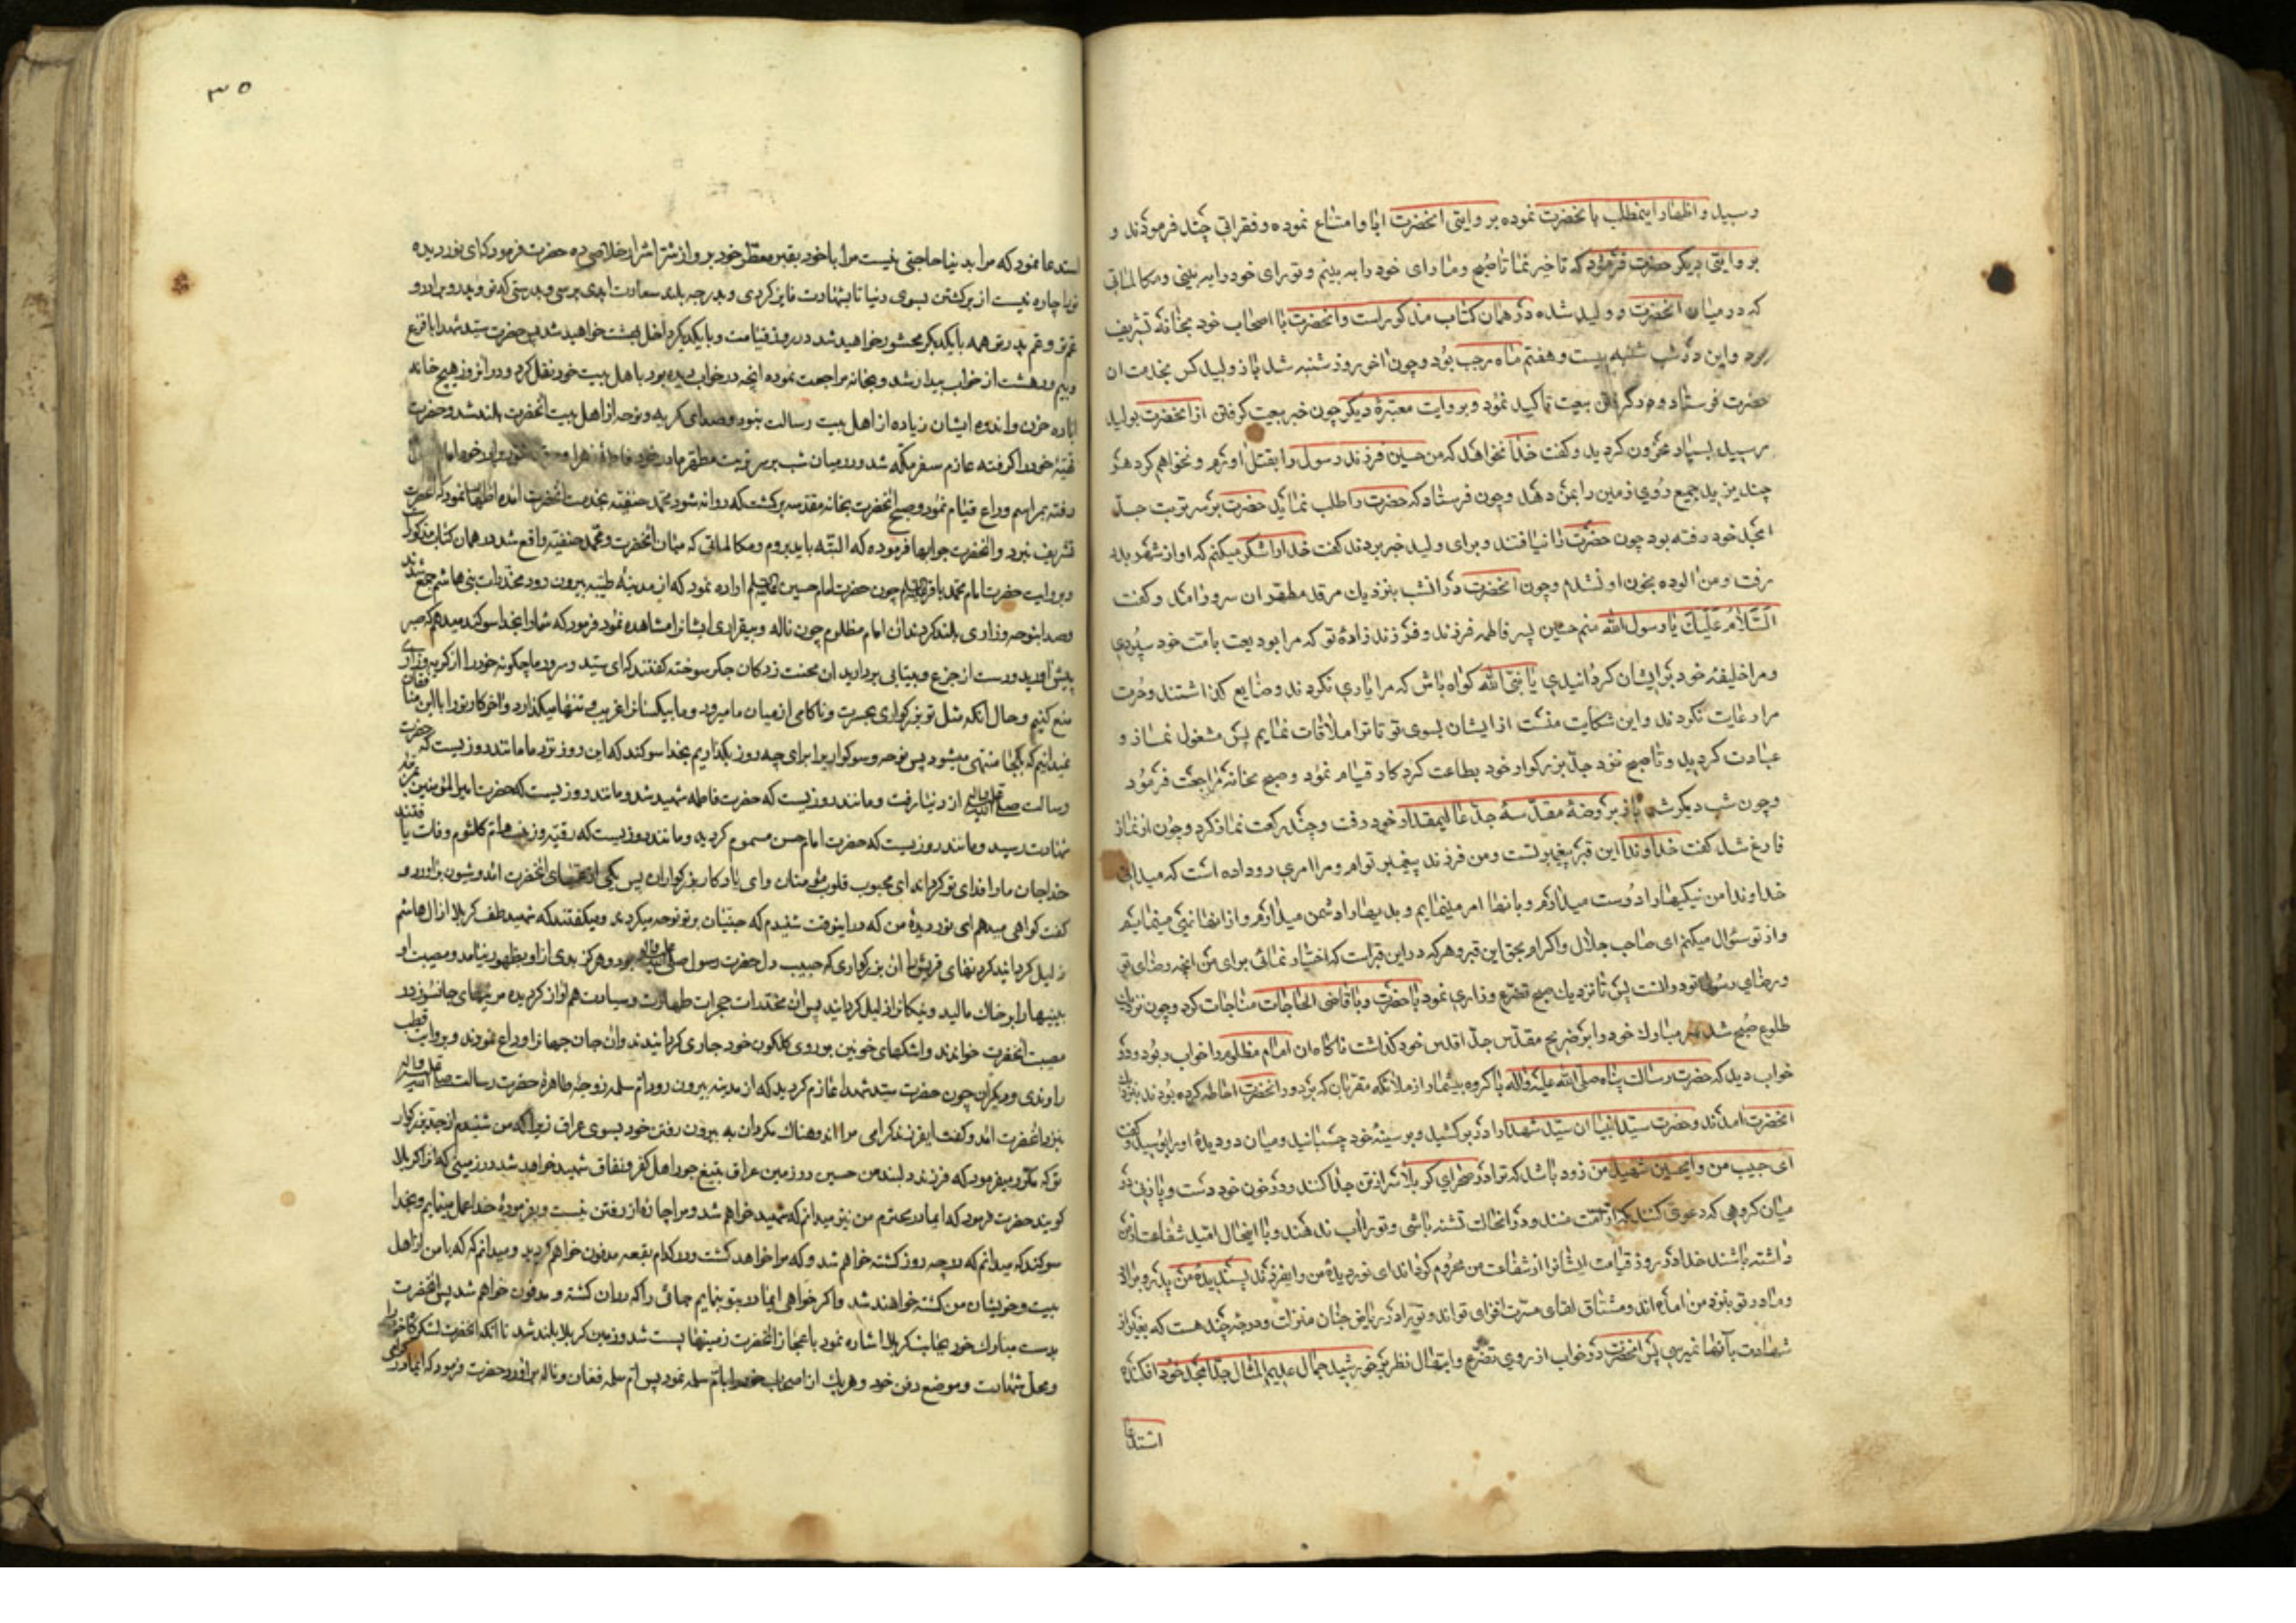 رسید و اظهار اینمطلب بانحضرت نموده بر وایتی انحضرت ابا و امتناع نموده و فقراتی چند فرمودند و
بر وایتی دیکر حضرت فرمود که تاخیر نما تا صبح و ما رای خود را به بینیم و تو رای خود را به بینی و مکالماتی
که در میان انحضرت و ولید شده در همان کتاب مذکور است و انحضرت با اصحاب خود بخانه تشریف
برد و این در شب شنبه بیست و هفتم ماه رجب بود و چون اخر روز شنبه شد باز ولید کس بخدمت ان
حضرت فرستاد و در کرفتن بیعت تاکید نمود و بروایت معتبرهٔ دیکر چون خبر بیعت کرفتن از انحضرت بولید
رسید بسیار محزون کردید و کفت خدا نخواهد که من حسین فرزند رسول را بقتل اورم و نخواهم کرد هر
چند یزید جمیع روی زمین را بمن دهد و چون فرستاد که حضرت را طلب نماید حضرت بر سر تربت جد
امجد خود رفته بود چون حضرت را نیافتند و برای ولید خبر بردند کفت خدا را شکر میکنم که او از شهر بدر
رفت و من الوده بخون او نشدم و چون انحضرت در انشب بنزدیك مرقد مطهر ان سرور امد و کفت
السلام علیك یا رسول الله منم حسین پسر فاطمه فرزند و فرزند زادهٔ تو که مرا بودیعت بامت خود سپردی
و مرا خلیفهٔ خود بر ایشان کردانیدی یا نبی الله کواه باش که مرا یاری نکردند و ضایع کذاشتند و حرمت
مرا رعایت نکردند و این شکایت منست از ایشان بسوی تو تا ترا ملاقات نمایم پس مشغول نماز و
عبادت کردید و تا صبح نزد جد بزرکوار خود بطاعت کردکار قیام نمود و صبح بخانه مراجعت فرمود
و چون شب دیکر شد باز بروضهٔ مقدسهٔ جد عالیمقدار خود رفت و چند رکعت نماز کرد و چون از نماز
فارغ شد کفت خداوندا این قبر پیغمبر تست و من فرزند پیغمبر توام و مرا امری رو داده است که میدانی
خداوندا من نیکیها را دوست میدارم و بانها امر مینمایم و بدیها را دشمن میدارم و از انها نهی مینمایم
و از تو سئوال میکنم ای صاحب جلال و اکرام بحق این قبر و هر که در این قبر است که اختیار نمائی برای من انچه رضای تو
و رضای رسول تو در انست پس تا نزدیك صبح تضرع و زاری نمود با حضرت و با قاضی الحاجات مناجات کرد و چون نزدیك
طلوع صبح شد سر مبارك خود را بر ضریح مقدس جد اقدس خود کذاشت ناکاه ان امام مظلوم را خواب ربود و در
خواب دید که حضرت رسالت پناه صلی الله علیه واله با کروه بیشمار از ملائکه مقربان که بر دور انحضرت احاطه کرده بودند بنزدیك
انحضرت امدند و حضرت سید انبیا ان سید شهدا را در بر کشید و بر سینهٔ خود چسبانید و میان دو دیدهٔ او را بوسید و کفت
ای حبیب من و ایحسین شهید من زود باشد که ترا در صحرای کربلا سر از تن جدا کنند و در خون خود دست و پا زنی در
میان کروهی که دعوی کنند که از امت منند و در انحالت تشنه باشی و تو را اب ندهند و با اینحال امید شفاعت از من
داشته باشند خدا در روز قیامت ایشانرا از شفاعت من محروم کرداند ای نور دیدهٔ من و ایفرزند پسندیدهٔ من پدر و برادر
و مادر تو بنزد من امده اند و مشتاق لقای مسرت افزای تو اند و تو را در ریاض جنان منزلت و درجهٔ چند هست که بغیر از
شهادت بانها نمیرسی پس انحضرت در خواب از روی تضرع و ابتهال نظر بر خورشید جمال عدیم المثال جد امجد خود افکنده
استدعا
۳۵
استدعا نمود که مرا بدنیا حاجتی نیست مرا با خود بقبر معطر خود بر و از شر اشرار خلاصی ده حضرت فرمود کای نور دیده
تو را چاره نیست از برکشتن بسوی دنیا تا بشهادت فایز کردی و بدرجه بلند سعادت ابدی برسی و بدرستی که تو و پدر و برادر و
عم تو و عم پدر تو همه با یکدیکر محشور خواهید شد در روز قیامت و با یکدیکر داخل بهشت خواهید شد پس حضرت سید شهدا با فزع
و بیم و دهشت از خواب بیدار شد و بخانه مراجعت نموده انچه در خواب دیده بود با هل بیت خود نقل کرد و در انروز هیچ خانه
اباده حزن و اندوه ایشان زیاده از اهل بیت رسالت نبود و صدای کریه و نوحه از اهل بیت انحضرت بلند شد و حضرت
تهیهٔ خود را کرفته عازم سفر مکه شد و در میان شب بر سر تربت مطهر مادر خود فاطمهٔ زهرا و برادر خود امام
رفته مراسم وداع قیام نمود و صبح انحضرت بخانه مقدسه برکشت که روانه شود محمد حنفیه بخدمت انحضرت امده اظهار نمود که انحضرت
تشریف نبرد و انحضرت جوابها فرموده که البته باید بروم و مکالماتی که میان انحضرت و محمد حنفیه واقع شد در همان کتاب مذکور است
و بروایت حضرت امام محمد باقر علیه السلام چون حضرت امام حسین علیه السلام اراده نمود که از مدینهٔ طیبه بیرون رود مخدرات بنی هاشم جمع شدند
و صدا بنوحه و زاری بلند کردند ان امام مظلوم چون ناله و بیقراری ایشانرا مشاهده نمود فرمود که شما را بخدا سوکند میدهم که صبر
پیش اورید و دست از جزع و بیتابی بردارید ان محنت زدکان جکر سوخته کفتند که ای سید و سرور ما چکونه خود را از کریه و زاری
منع کنیم و حال انکه مثل تو بزرکواری بحسرت و ناکامی از میان ما میرود و ما بیکسانرا غریب و تنها میکذارد و اخر کار تو را با این منافقان
نمیدانیم که بکجا منتهی میشود پس نوحه و سوکواری را برای چه روز بکذاریم بخدا سوکند که این روز نزد ما مانند روزیست که حضرت
رسالت صلی الله علیه واله از دنیا رفت و مانند روزیست که حضرت فاطمه شهید شد و مانند روزیست که حضرت امیر المؤمنین بدرجه
شهادت رسید و مانند روزیست که حضرت امام حسن مسموم کردید و مانند روزیست که رقیه و زینب و ام کلثوم وفات یافتند
خدا جان ما را فدای تو کرداند ای محبوب قلوب مؤمنان و ای یادکار بزرکواران پس یکی از عمتهای انحضرت امد و شیون براورد و
کفت کواهی میدهم ای نور دیدهٔ من که در اینوقت شنیدم که جنیان بر تو نوحه میکردند و میکفتند که شهید طف کربلا از ال هاشم
ذلیل کردانید کردنهای قریش را ان بزرکواری که حبیب دل حضرت رسول صلی الله علیه واله بود و هرکز بدی از او بظهور نیامد و مصیبت او
بینیها را بر خاك مالید و نیکانرا ذلیل کردانید پس ان مخدرات حجرات طهارت و سیادت هم اواز کردیده مرثیهای جانسوز در
مصیبت انحضرت خواندند و اشکهای خونین بر روی کلکون خود جاری کردانیدند و ان جان جهانرا وداع نمودند و بروایت قطب
راوندی و دیکران چون حضرت سید شهدا عازم کردید که از مدینه بیرون رود ام سلمه زوجهٔ طاهرهٔ حضرت رسالت صلی الله علیه واله
بنزد انحضرت امد و کفت ایفرزند کرامی مرا اندوهناك مکردان به بیرون رفتن خود بسوی عراق زیرا که من شنیدم از جد بزرکوار
تو که مکرر میفرمود که فرزند دلبند من حسین در زمین عراق بتیغ جور اهل کفر و نفاق شهید خواهد شد در زمینی که انرا کربلا
کویند حضرت فرمود که ایمادر محترم من نیز میدانم که شهید خواهم شد و مرا چاره از رفتن نیست و بفرمودهٔ خدا عمل مینمایم و بخدا
سوکند که میدانم که در چه روز کشته خواهم شد و که مرا خواهد کشت و در کدام بقعه مدفون خواهم کردید و میدانم که که با من از اهل
بیت و خویشان من کشته خواهند شد و اکر خواهی ایمادر بتو بنمایم جائی را که در ان کشته و مدفون خواهم شد پس انحضرت
بدست مبارك خود بجانب کربلا اشاره نمود باعجاز انحضرت زمینها پست شد و زمین کربلا بلند شد تا انکه انحضرت لشکرکاه خود را
و محل شهادت و موضع دفن خود و هر یك از اصحاب خود را بام سلمه نمود پس ام سلمه فغان و ناله براورد حضرت فرمود که ایمادر